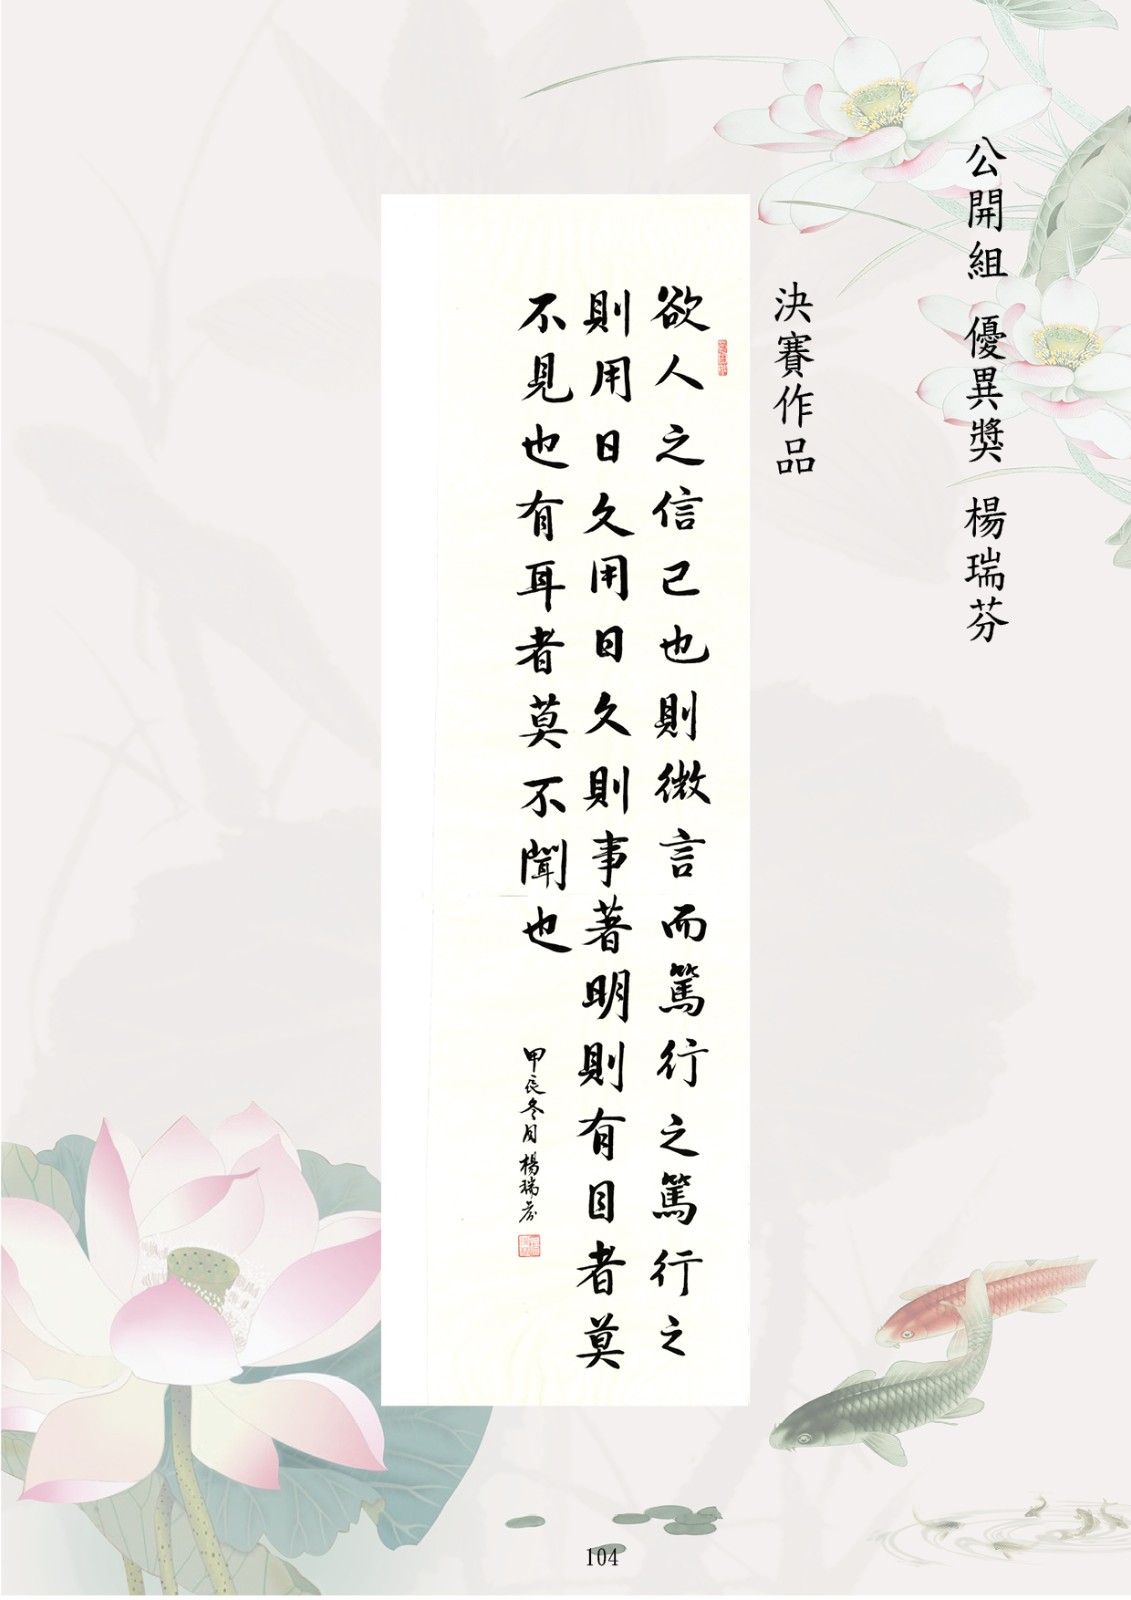 公開組 優異獎 楊瑞芬
決賽作品
欲人之信已也則微言而篤行之篤行之
則用日久用日久則事著明則有目者莫
不見也有耳者莫不聞也
甲辰冬月楊瑞芬
104